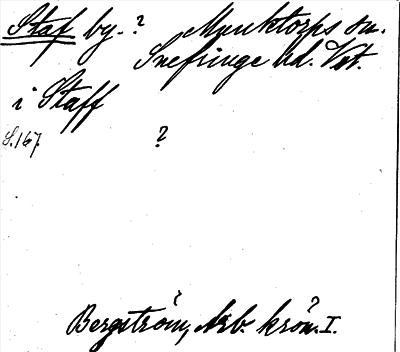 Staf by. ? Munktorps sn.
Snefringe hd. Vstm.
i Staff
S. 167 ?
Bergström, Arb. krön. I.